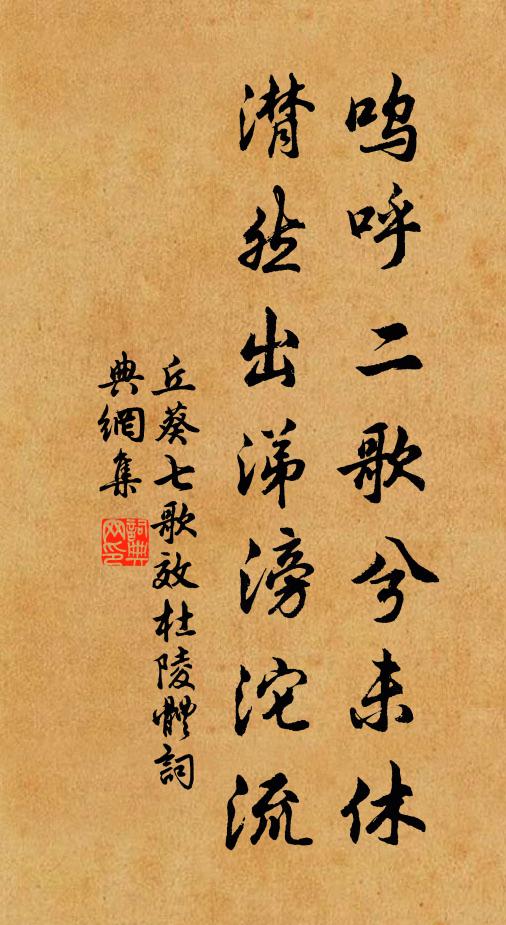 嗚呼二歌兮未休
潸然出涕滂沱流
丘葵七歌效杜陵體詞
典網集
詞典
网印